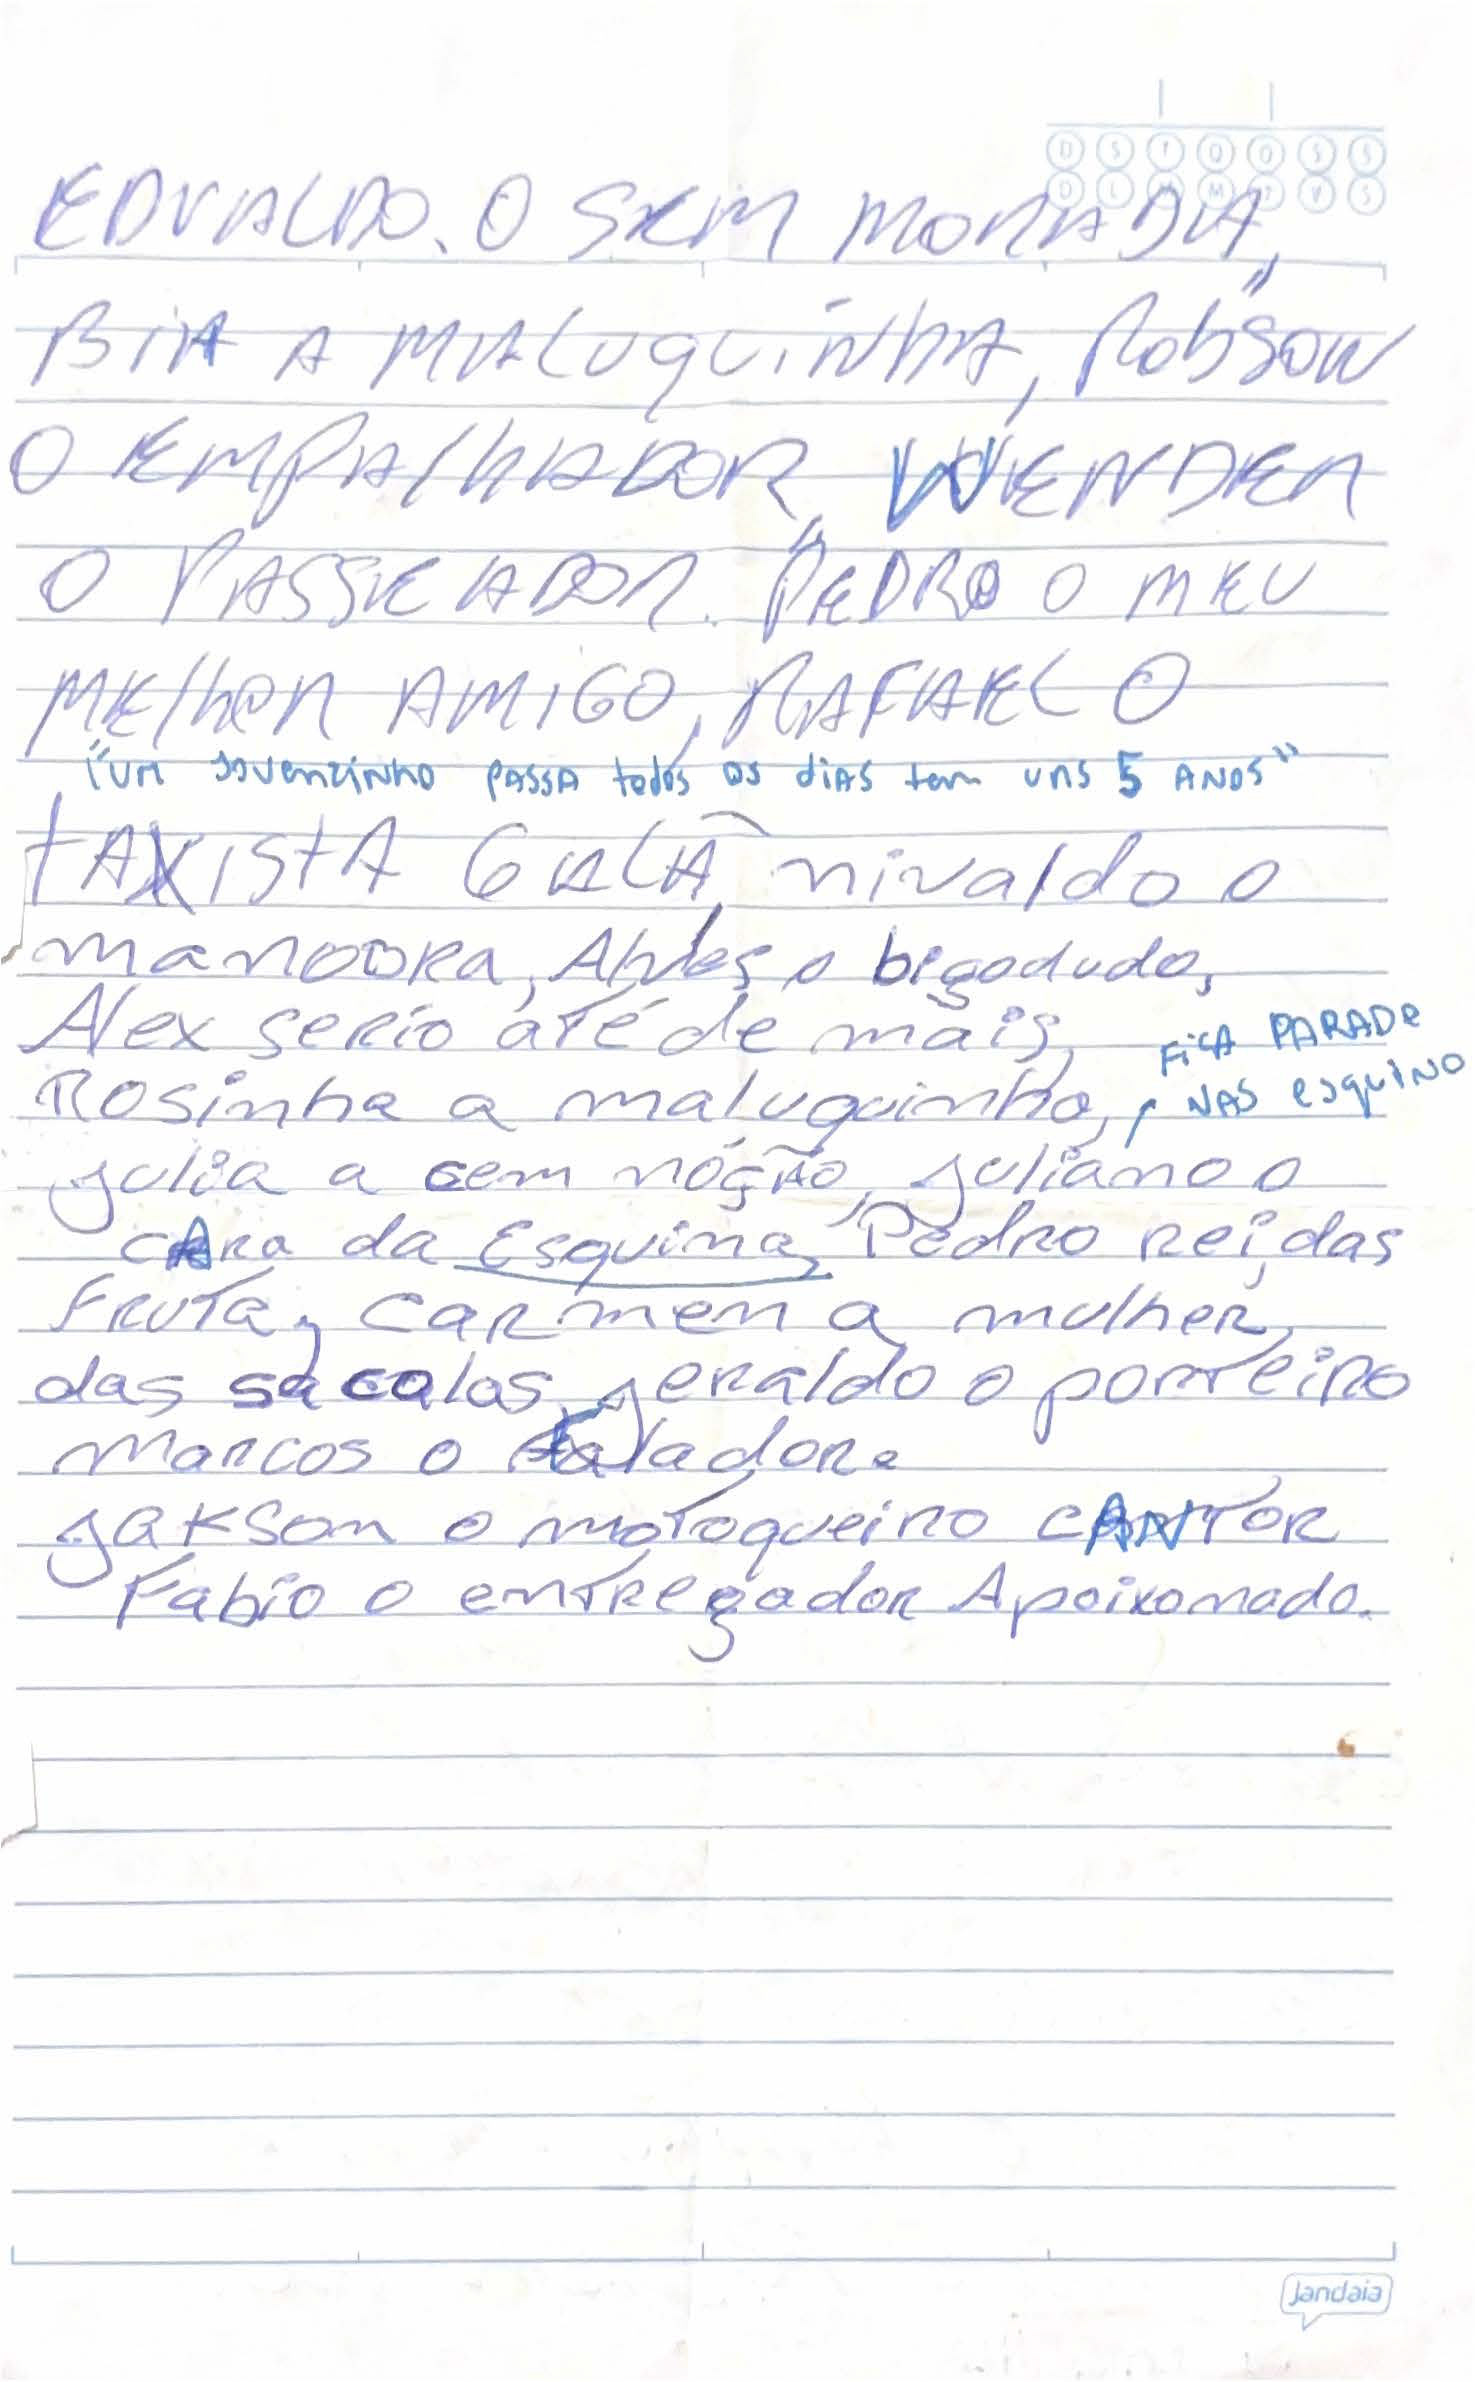 D S T Q Q S S
D L M M J V S
EDVALDO. O SEM MORADIA,
BIA A MALUQUINHA, Robson
O EMPALHADOR, WENDER
O PASSEADOR. "PEDRO O MEU
MElhOR AMIGO, RAFAEL O
"UM JOVENZINHO PASSA todos OS diAS tem UNS 5 ANOS"
tAXIStA GALÃ, nivaldo o
manoora, Alves o bigodudo,
Alex serio até de mais,
FiCA PARADA
Rosinha a maluquinha,
NAS esquiNO
Julia a sem nóção, Juliano o
cAra da Esquina, Pedro rei, das
Fruta, carmen a mulher,
das sacolas, geraldo o porteiro
Marcos o Falador.
Jakson o motoqueiro cANTOR
Fabio o entregador Apaixonado.
Jandaia